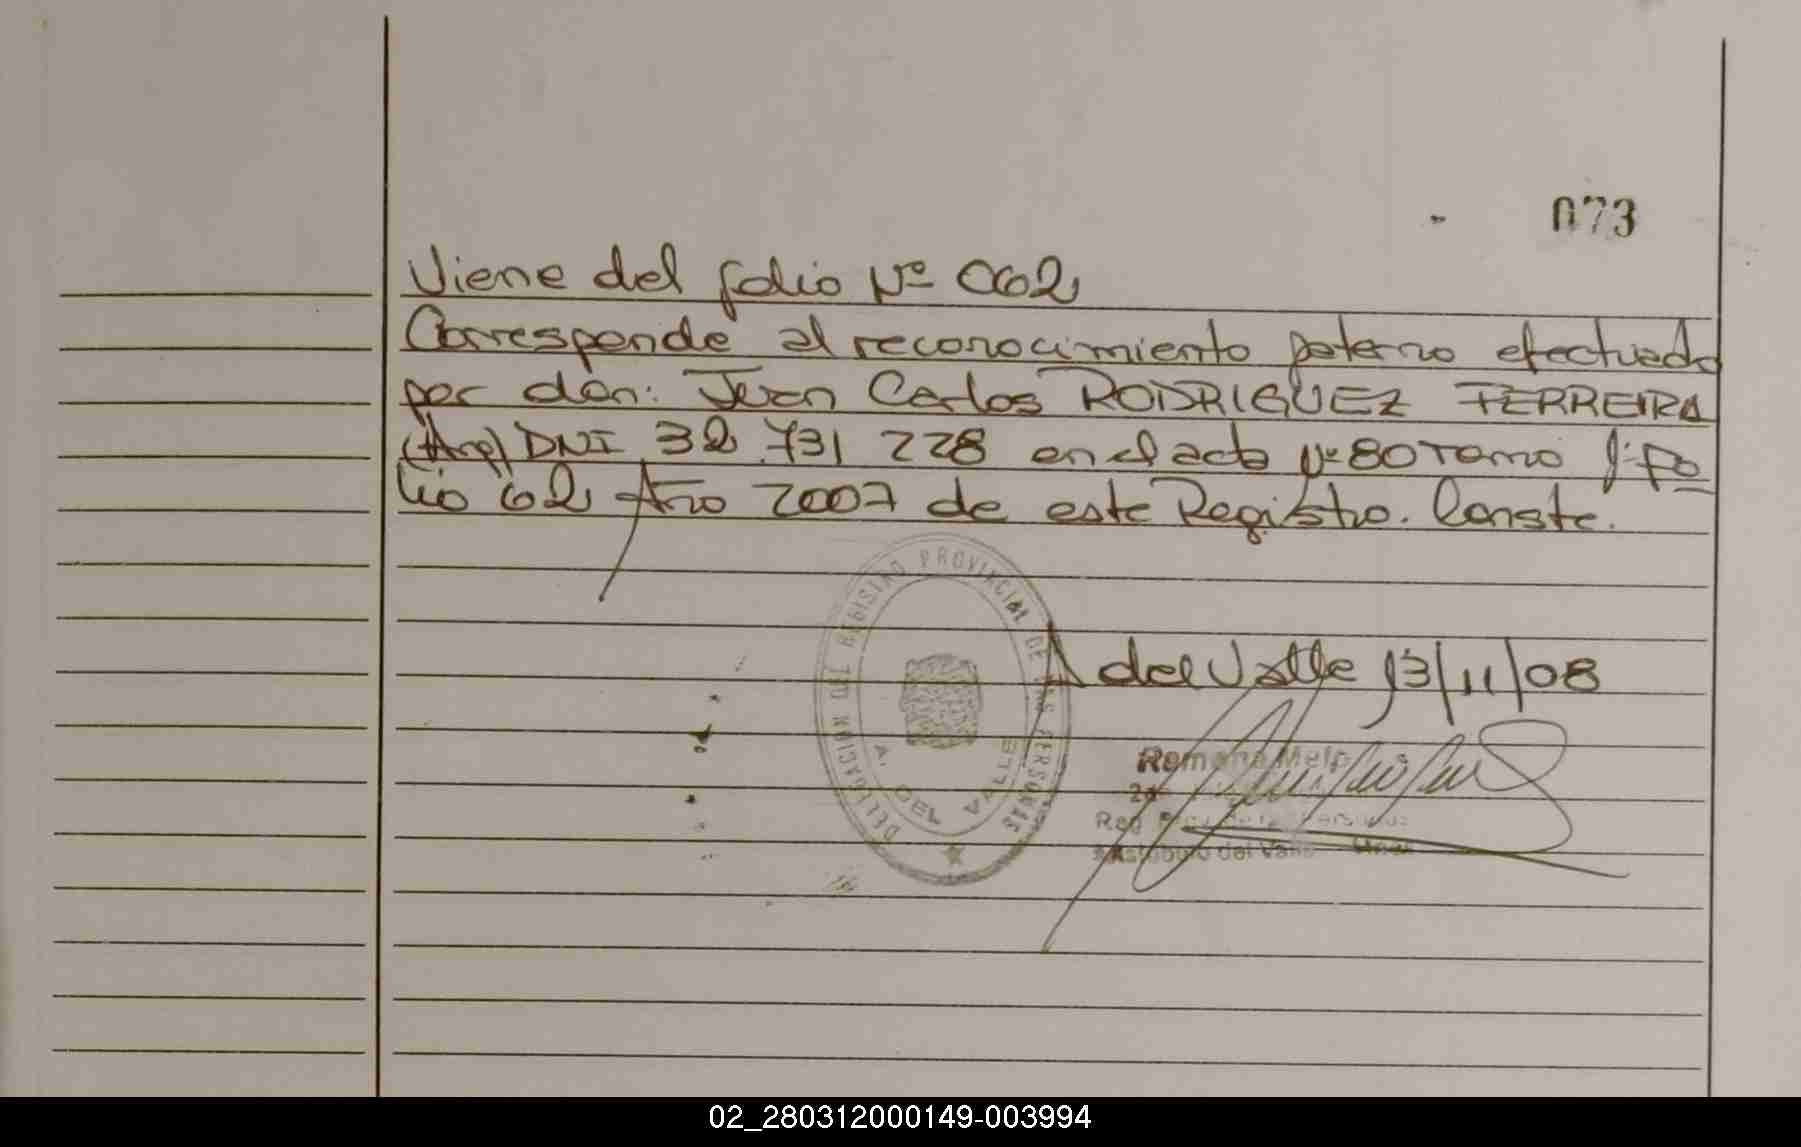 073
Viene del folio Nº 062
Corresponde al reconocimiento paterno efectuado
por don: Juan Carlos RODRIGUEZ FERREIRA
(Arg) DNI 32.731 228 en el acta Nº 80 Tomo 1º Fo
lio 62 Año 2007 de este Registro. Conste.
DELEGACION DEL REGISTRO PROVINCIAL DE LAS PERSONAS
A. DEL VALLE
A del Valle 13/11/08
Ramona
Reg
Aristobulo del Valle
02_280312000149-003994